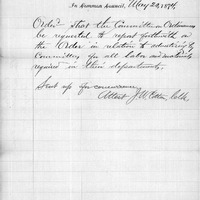 In Common Council, May 28, 1874
Order'd That the Committee on Ordinances
be requested to report forthwith on
the Order in relation to advertising by
Committees for all Labor and materials
required in their departments.
Sent up for concurrence,
Attest J. W. Cotton, Clerk